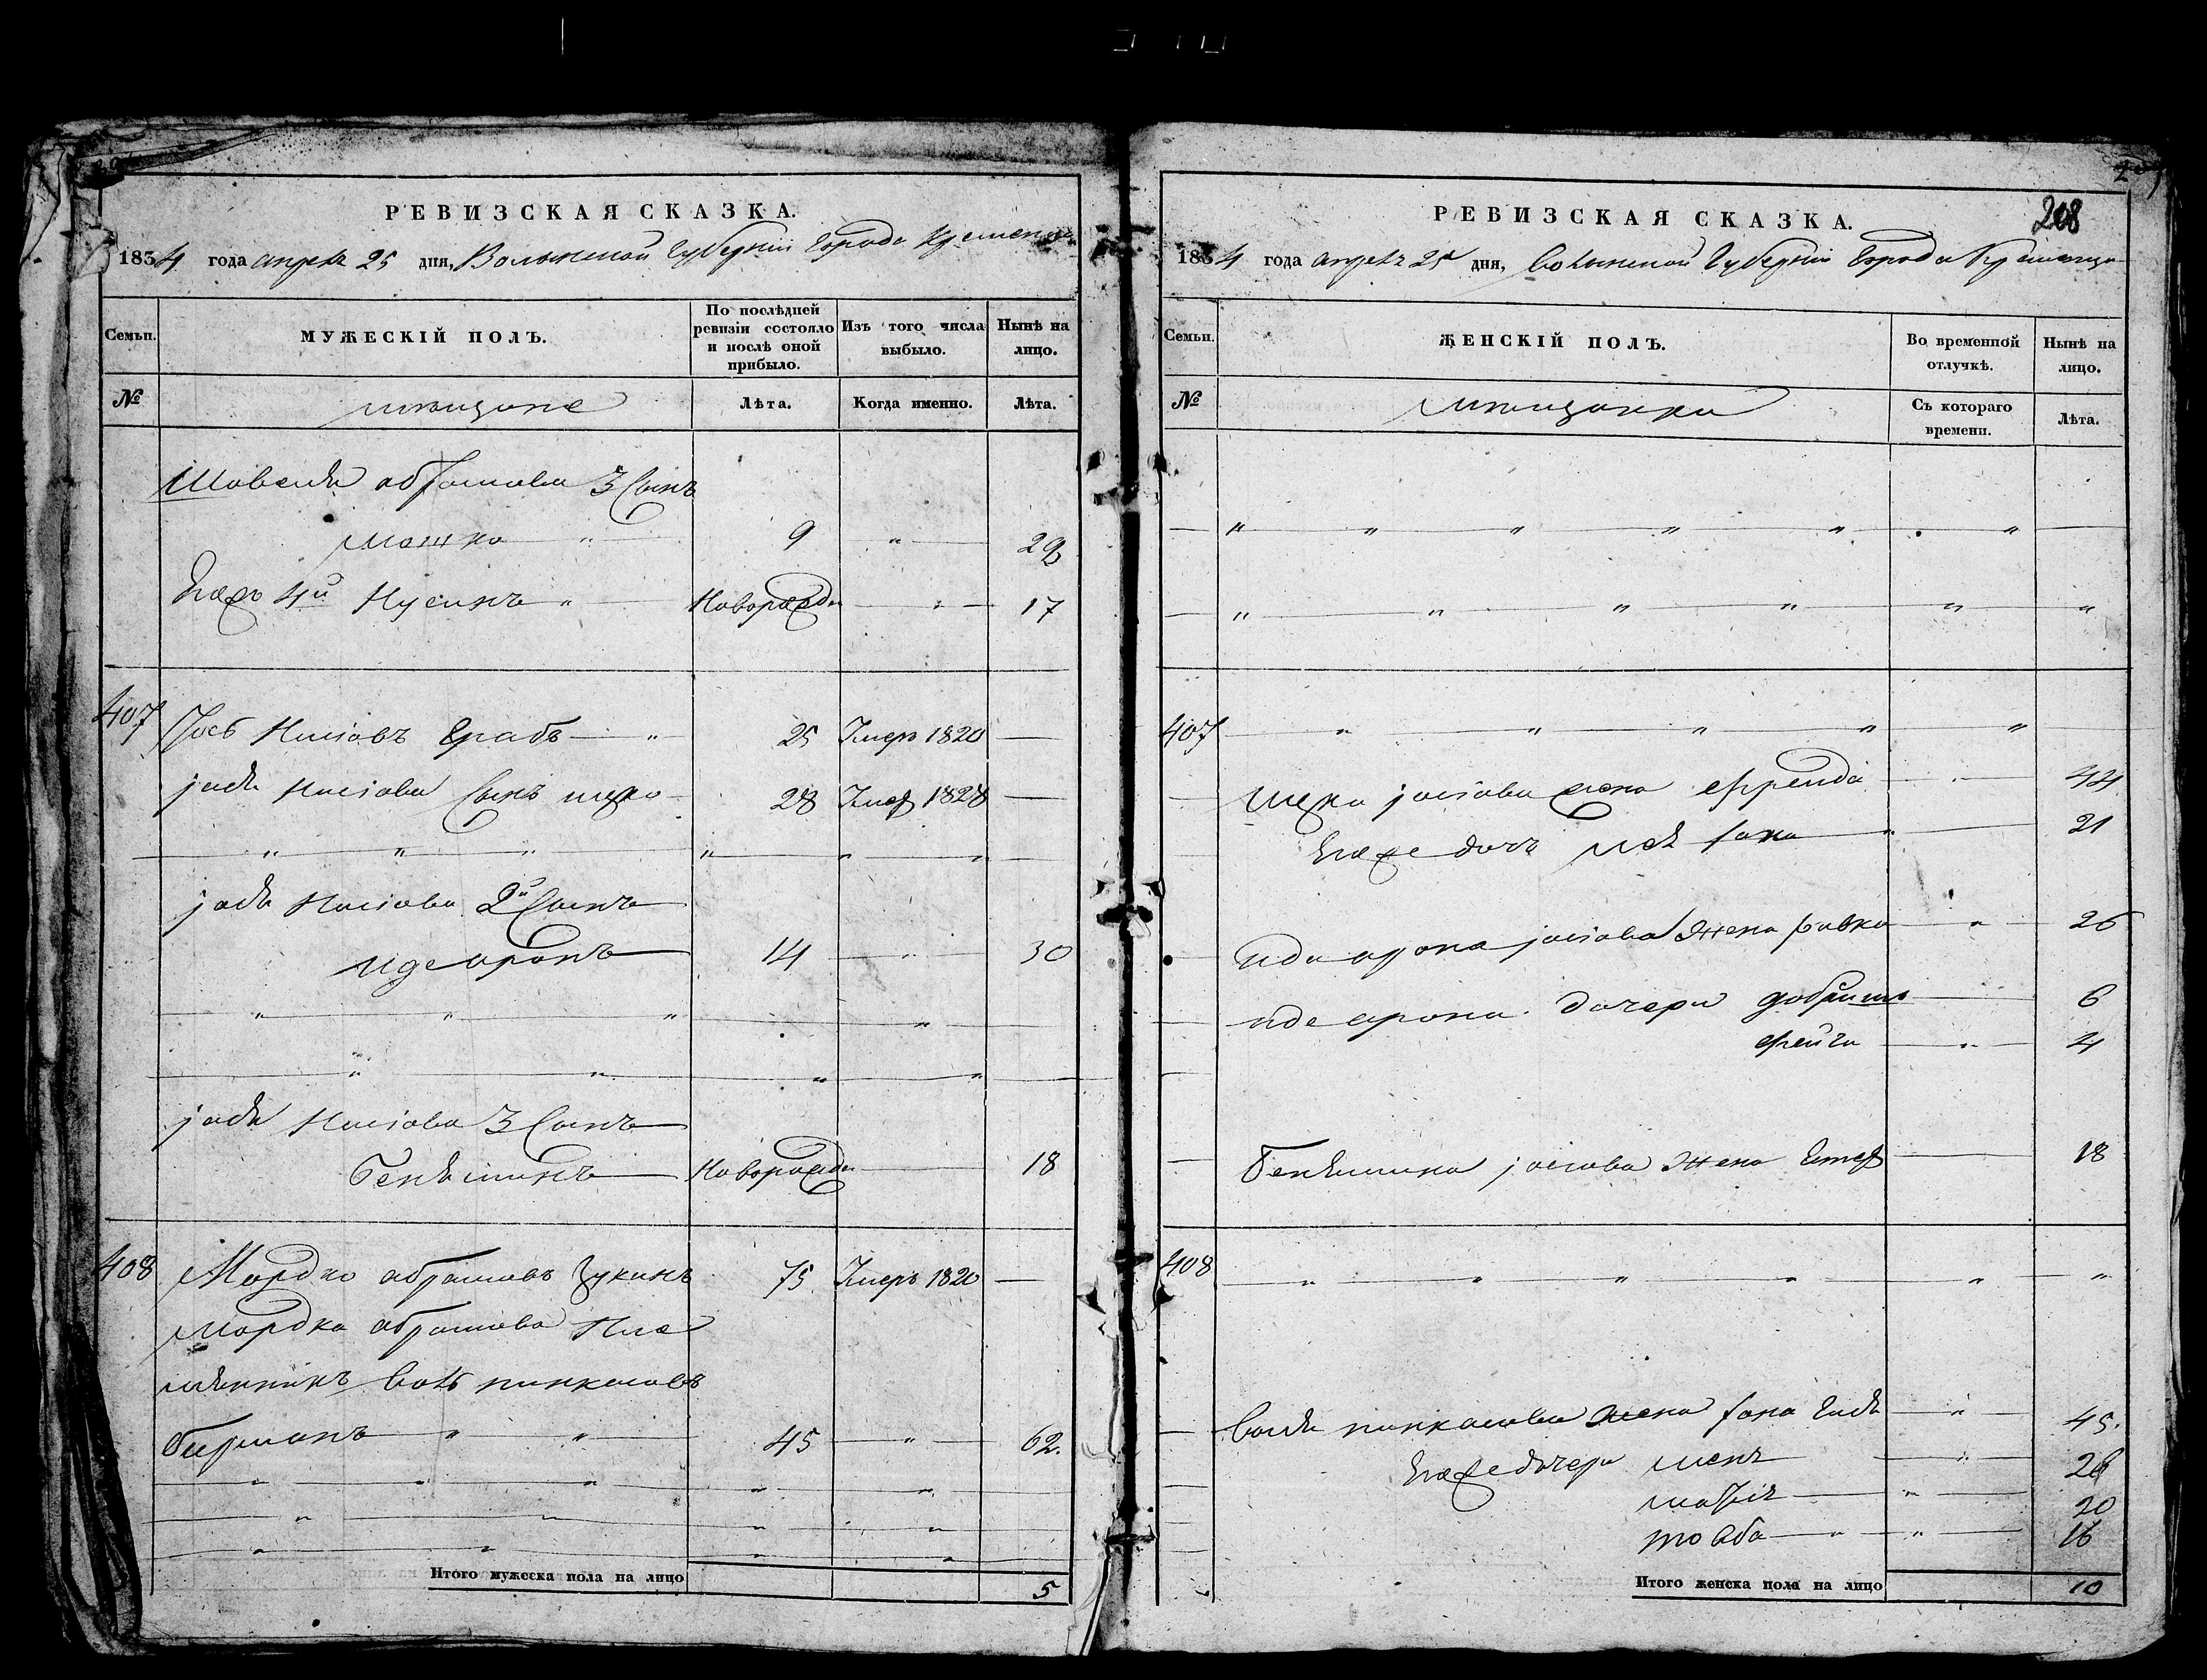 РЕВИЗСКАЯ СКАЗКА.
1834 года апреля 25 дня, Волынской Губернии Города Кременца
Семьи. МУЖЕСКІЙ ПОЛЪ. По послѣдней ревизіи состояло и послѣ оной прибыло. Изъ того числа выбыло. Нынѣ на лицо.
№ мещане Лѣта. Когда именно. Лѣта.
Шовеля абрамова 3 Сынъ
мошко " 9 " 29
Егожъ 4й Нусинъ " Новорожден " 17
407 Іось Нисіовъ Грабъ " 25 Умеръ 1820
іося Нисіова Сынъ 28 Умер 1828
" " " " " "
іося Нисіова 2й Сынъ
иде аронъ 14 " 30
" " " "
" " " "
іося Нисіова 3 Сынъ
Бенѣминъ Новорожден 18
408 Мордко абрамовъ 75 Умеръ 1820
Мордка абрамова Пле
мянникъ пинкасовъ
Гитерманъ " " 45 " 62.
" " " " "
" " " "
" " " "
Итого мужеска пола на лицо 5
208
РЕВИЗСКАЯ СКАЗКА.
1834 года апреля 25 дня, Волынской Губернии Города Кременца
Семьи. ЖЕНСКІЙ ПОЛЪ. Во временной отлучкѣ. Нынѣ на лицо.
№ мещанки Съ котораго времени. Лѣта.
" " " " " "
" " " " " "
407 " " " " "
іосіова жена фрейда " 44
Егоже дочь хана " 21
иде арона іосіова жена ривка " 26
иде арона дочери добришъ 6
фейга " 4
Бенѣмина іосіова жена Естер 18
408 " " " " " "
пинкасова жена хана " 45.
Егоже дочери " 26
" 20
товба " " 16
Итого женска пола на лицо 10